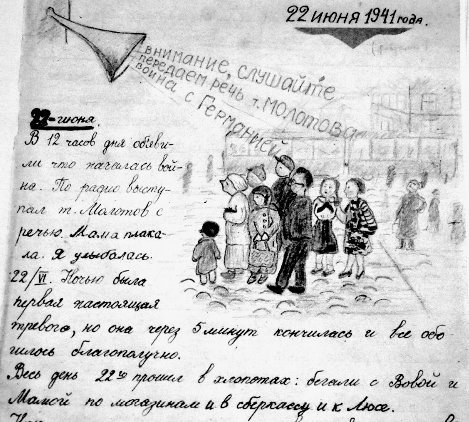 22 июня 1941 года.
Внимание, слушайте
передаем речь т. Молотова
война с Германией
22-июня.
В 12 часов дня объяви-
ли что началась вой-
на. По радио высту-
пал т. Молотов с
речью. Мама плака-
ла. Я улыбалась.
22/VI. Ночью была
первая настоящая
тревога, но она через 5 минут кончилась и все обо
шлось благополучно.
Весь день 22го прошел в хлопотах: бегали с Вовой и
Мамой по магазинам и в сберкассу и к Люсе.